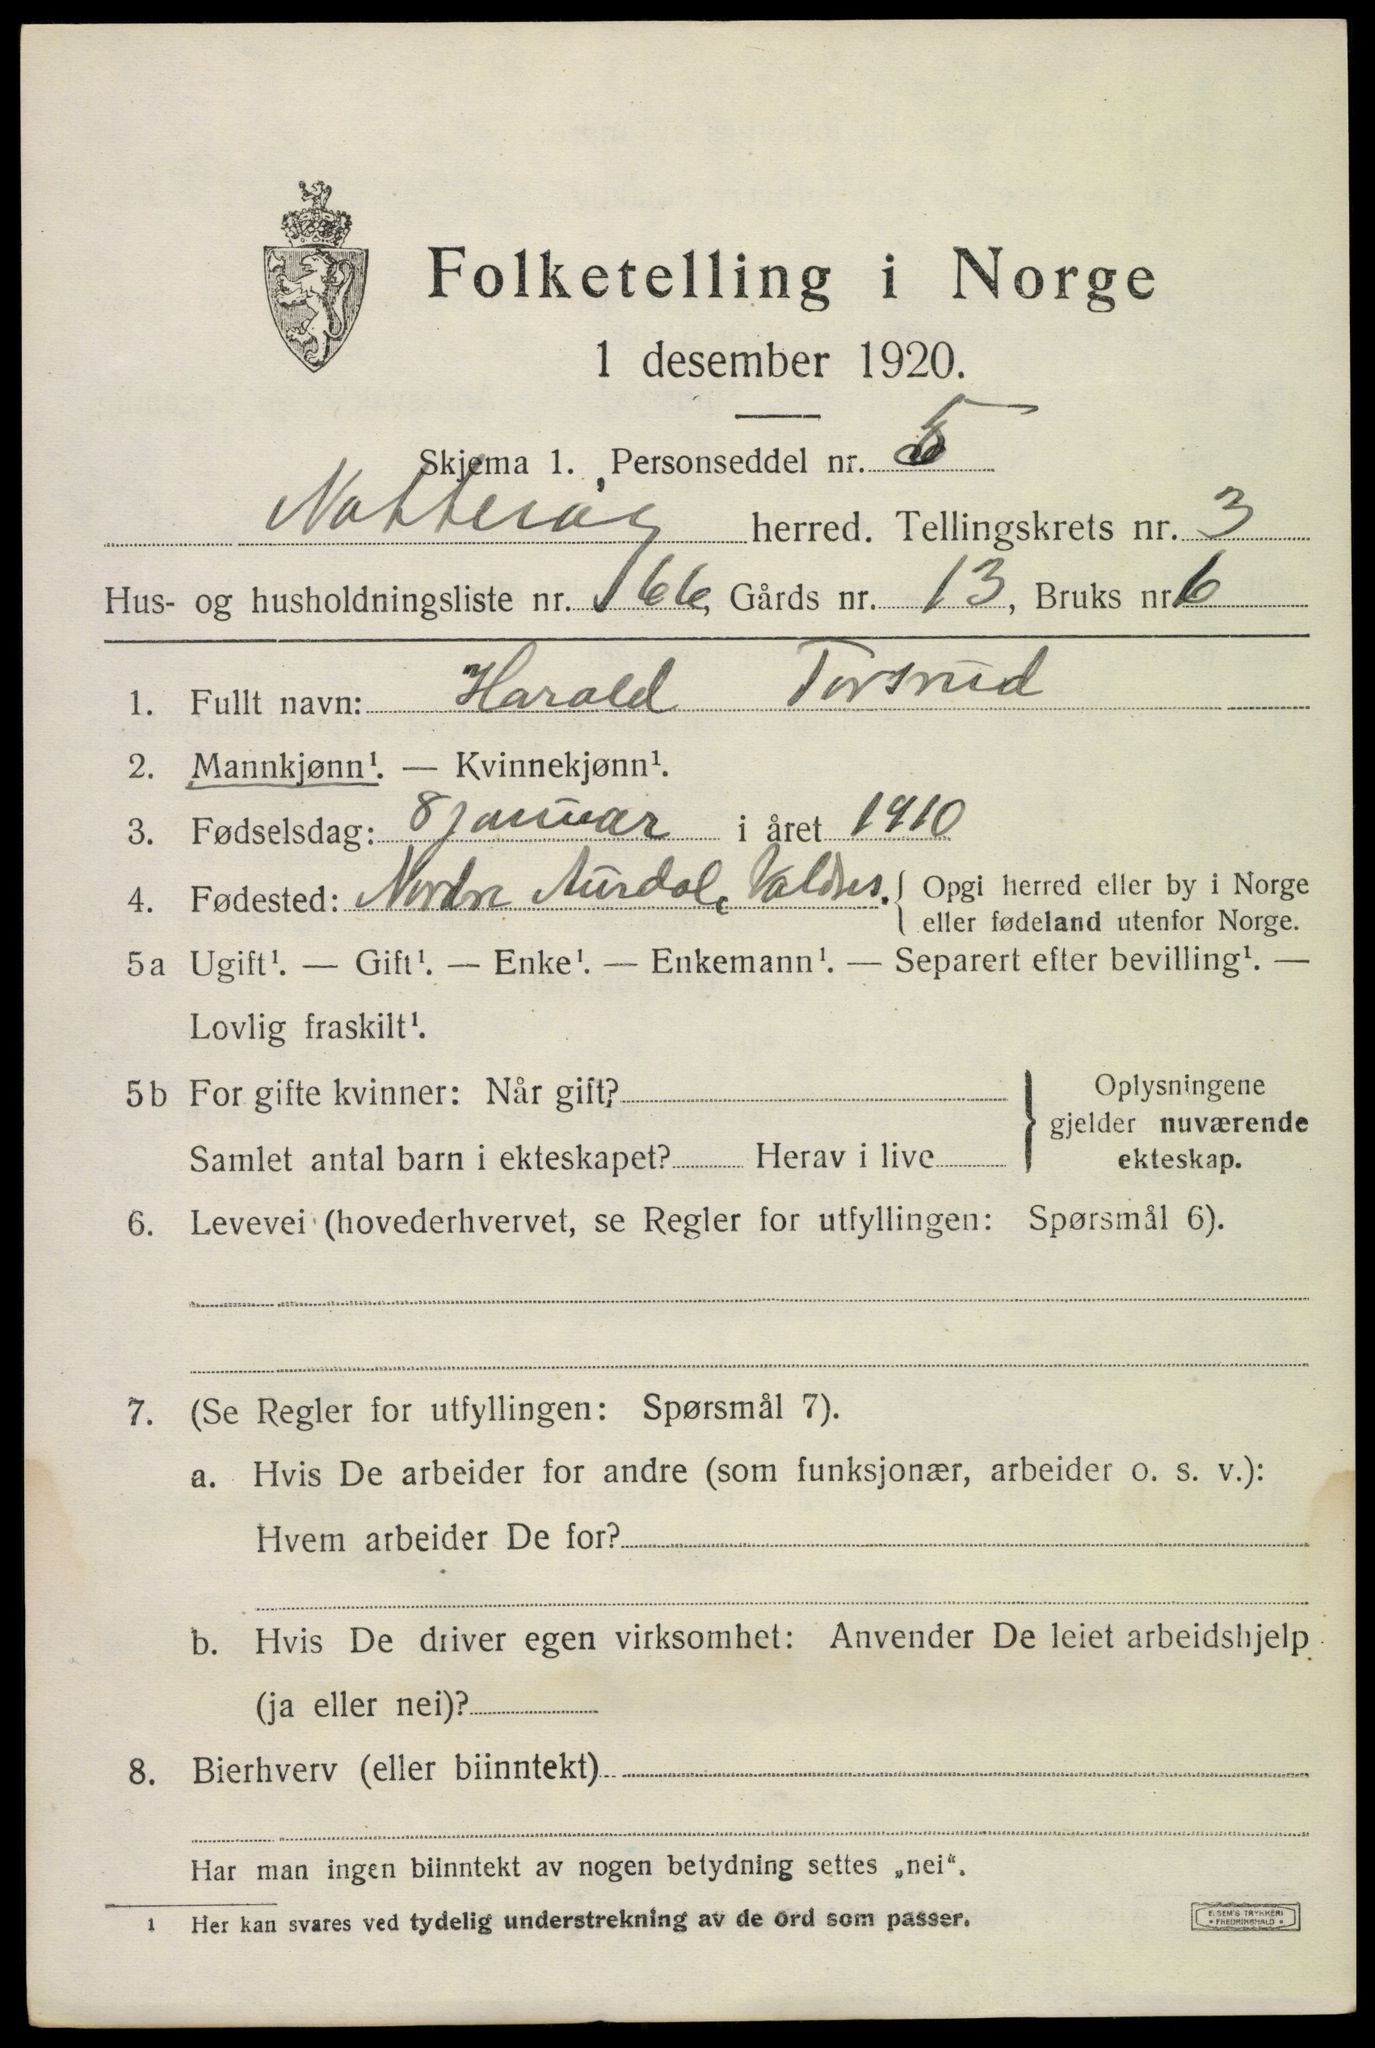 Folketelling i Norge
1 desember 1920.
Skjema 1. Personseddel nr. 5
Nøtterøy herred. Tellingskrets nr. 3
Hus- og husholdningsliste nr. 166, Gårds nr. 13, Bruks nr. 6
1. Fullt navn: Harald Torsrud
2. Mannkjønn¹. — Kvinnekjønn¹.
3. Fødselsdag: 8 januar i året 1910
4. Fødested: Nordre Aurdal, Valdres. { Opgi herred eller by i Norge
eller fødeland utenfor Norge.
5a Ugift¹. — Gift¹. — Enke¹. — Enkemann¹. — Separert efter bevilling¹. —
Lovlig fraskilt¹.
5b For gifte kvinner: Når gift? } Oplysningene
gjelder nuværende
Samlet antal barn i ekteskapet? Herav i live ekteskap.
6. Levevei (hovederhvervet, se Regler for utfyllingen: Spørsmål 6).
7. (Se Regler for utfyllingen: Spørsmål 7).
a. Hvis De arbeider for andre (som funksjonær, arbeider o. s. v.):
Hvem arbeider De for?
b. Hvis De driver egen virksomhet: Anvender De leiet arbeidshjelp
(ja eller nei)?
8. Bierhverv (eller biinntekt)
Har man ingen biinntekt av nogen betydning settes „nei“.
1 Her kan svares ved tydelig understrekning av de ord som passer.
E. SEM'S TRYKKERI
• FREDRIKSHALD •